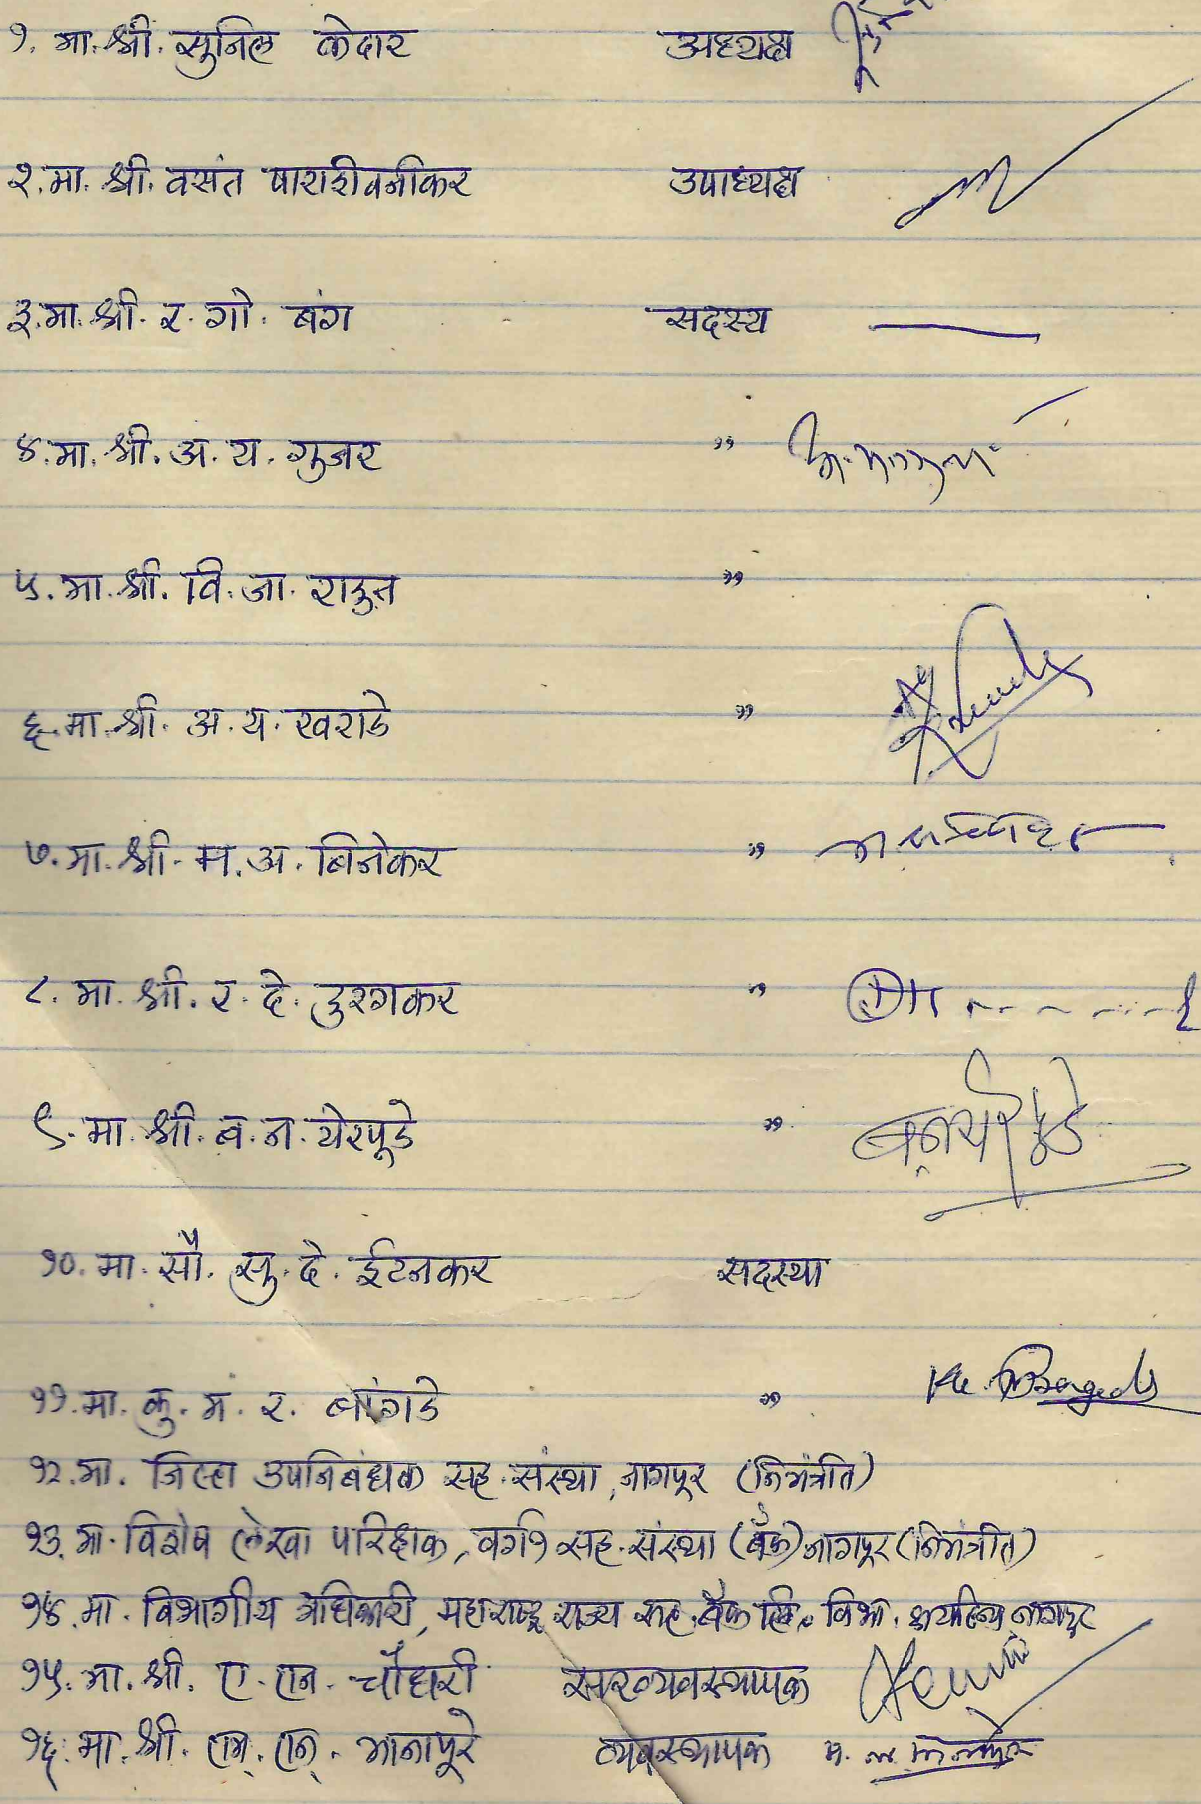 १. मा. श्री. सुनिल केदार अध्यक्ष
२. मा. श्री. वसंत पाराशीवनीकर उपाध्यक्ष
३. मा. श्री. र. गो. बंग सदस्य
४. मा. श्री. अ. य. गुजर "
५. मा. श्री. वि. जा. राऊत "
६. मा. श्री. अ. य. खराडे "
७. मा. श्री. म. अ. बिनेकर "
८. मा. श्री. र. दे. दुरुगकर "
९. मा. श्री. ब. न. येरपूडे "
१०. मा. सौ. सु. दे. ईटनकर सदस्या
११. मा. कु. मं. र. बांगडे "
१२. मा. जिल्हा उपनिबंधक सह. संस्था, नागपूर (निमंत्रीत)
१३. मा. विशेष लेखा परिक्षक, वर्ग१ सह. संस्था (बँक) नागपूर (निमंत्रीत)
१४. मा. विभागीय अधिकारी, महाराष्ट्र राज्य सह. बँक लि. विभा. कार्यालय नागपूर
१५. मा. श्री. ए. एन. चौधरी सरव्यवस्थापक
१६. मा. श्री. एम्. एन्. मानापूरे व्यवस्थापक